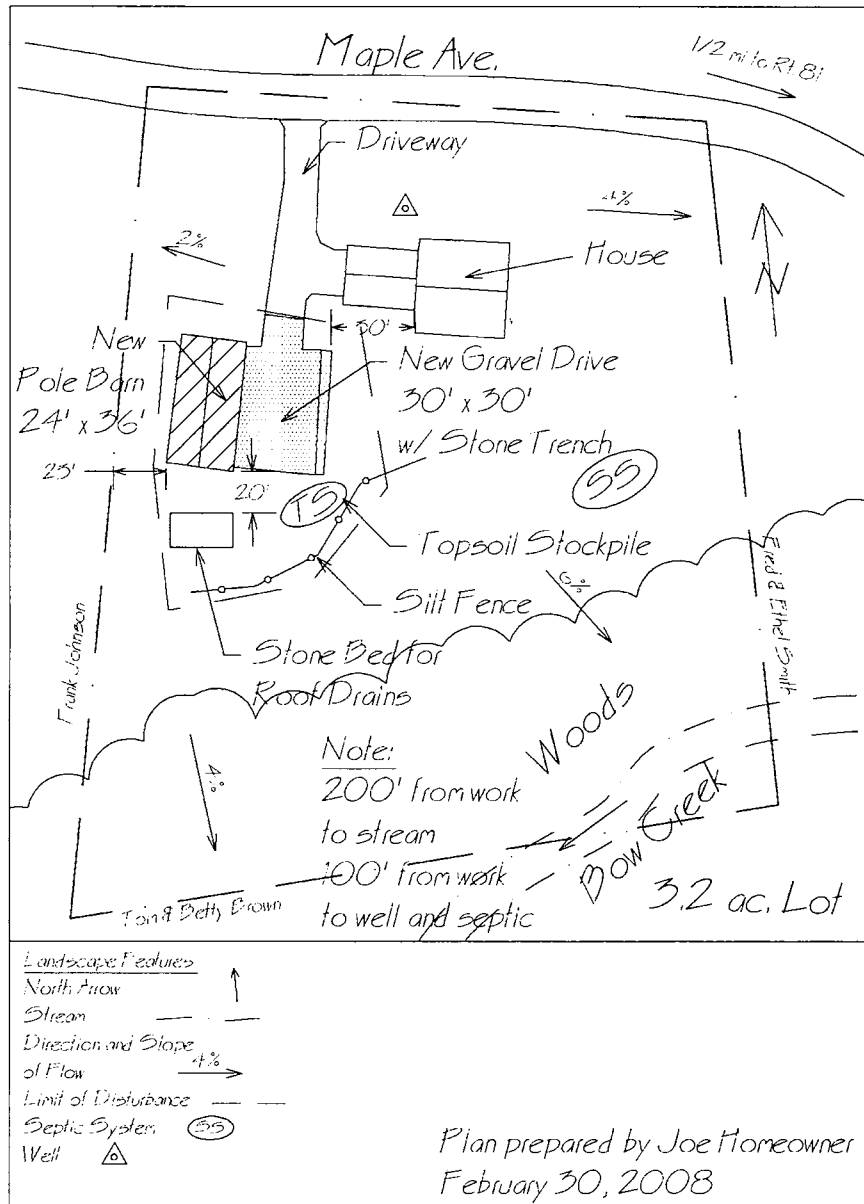 Maple Ave.
1/2 mi to Rt. 81
Driveway
4%
2%
House
N
30'
New
Pole Barn
24' x 36'
New Gravel Drive
30' x 30'
w/ Stone Trench
25'
20'
TS
SS
Topsoil Stockpile
6%
Silt Fence
Fred & Ethel Smith
Frank Johnson
Stone Bed for
Roof Drains
Woods
4%
Note:
200' from work
to stream
100' from work
to well and septic
Bow Creek
3.2 ac. Lot
Tom & Betty Brown
Landscape Features
North Arrow
Stream
Direction and Slope
of Flow 4%
Limit of Disturbance
Septic System SS
Well
Plan prepared by Joe Homeowner
February 30, 2008